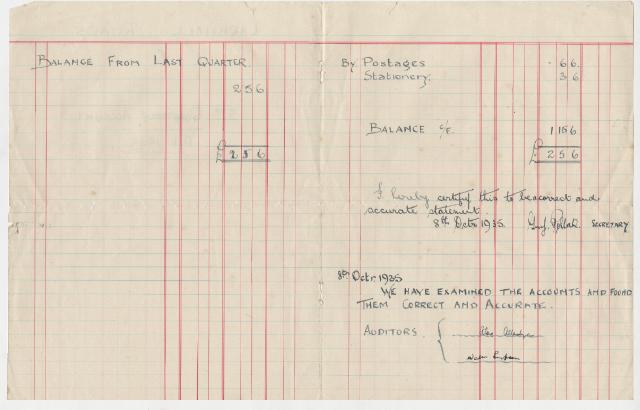 BALANCE FROM LAST QUARTER
2 5 6
£ 2 5 6
By Postages 6 6.
Stationery. 3 6
BALANCE c/f. 1 15 6
£ 2 5 6
I hereby certify this to be correct and
accurate statement.
8th Octr 1935. SECRETARY
8th Octr 1935
WE HAVE EXAMINED THE ACCOUNTS AND FOUND
THEM CORRECT AND ACCURATE.
AUDITORS.